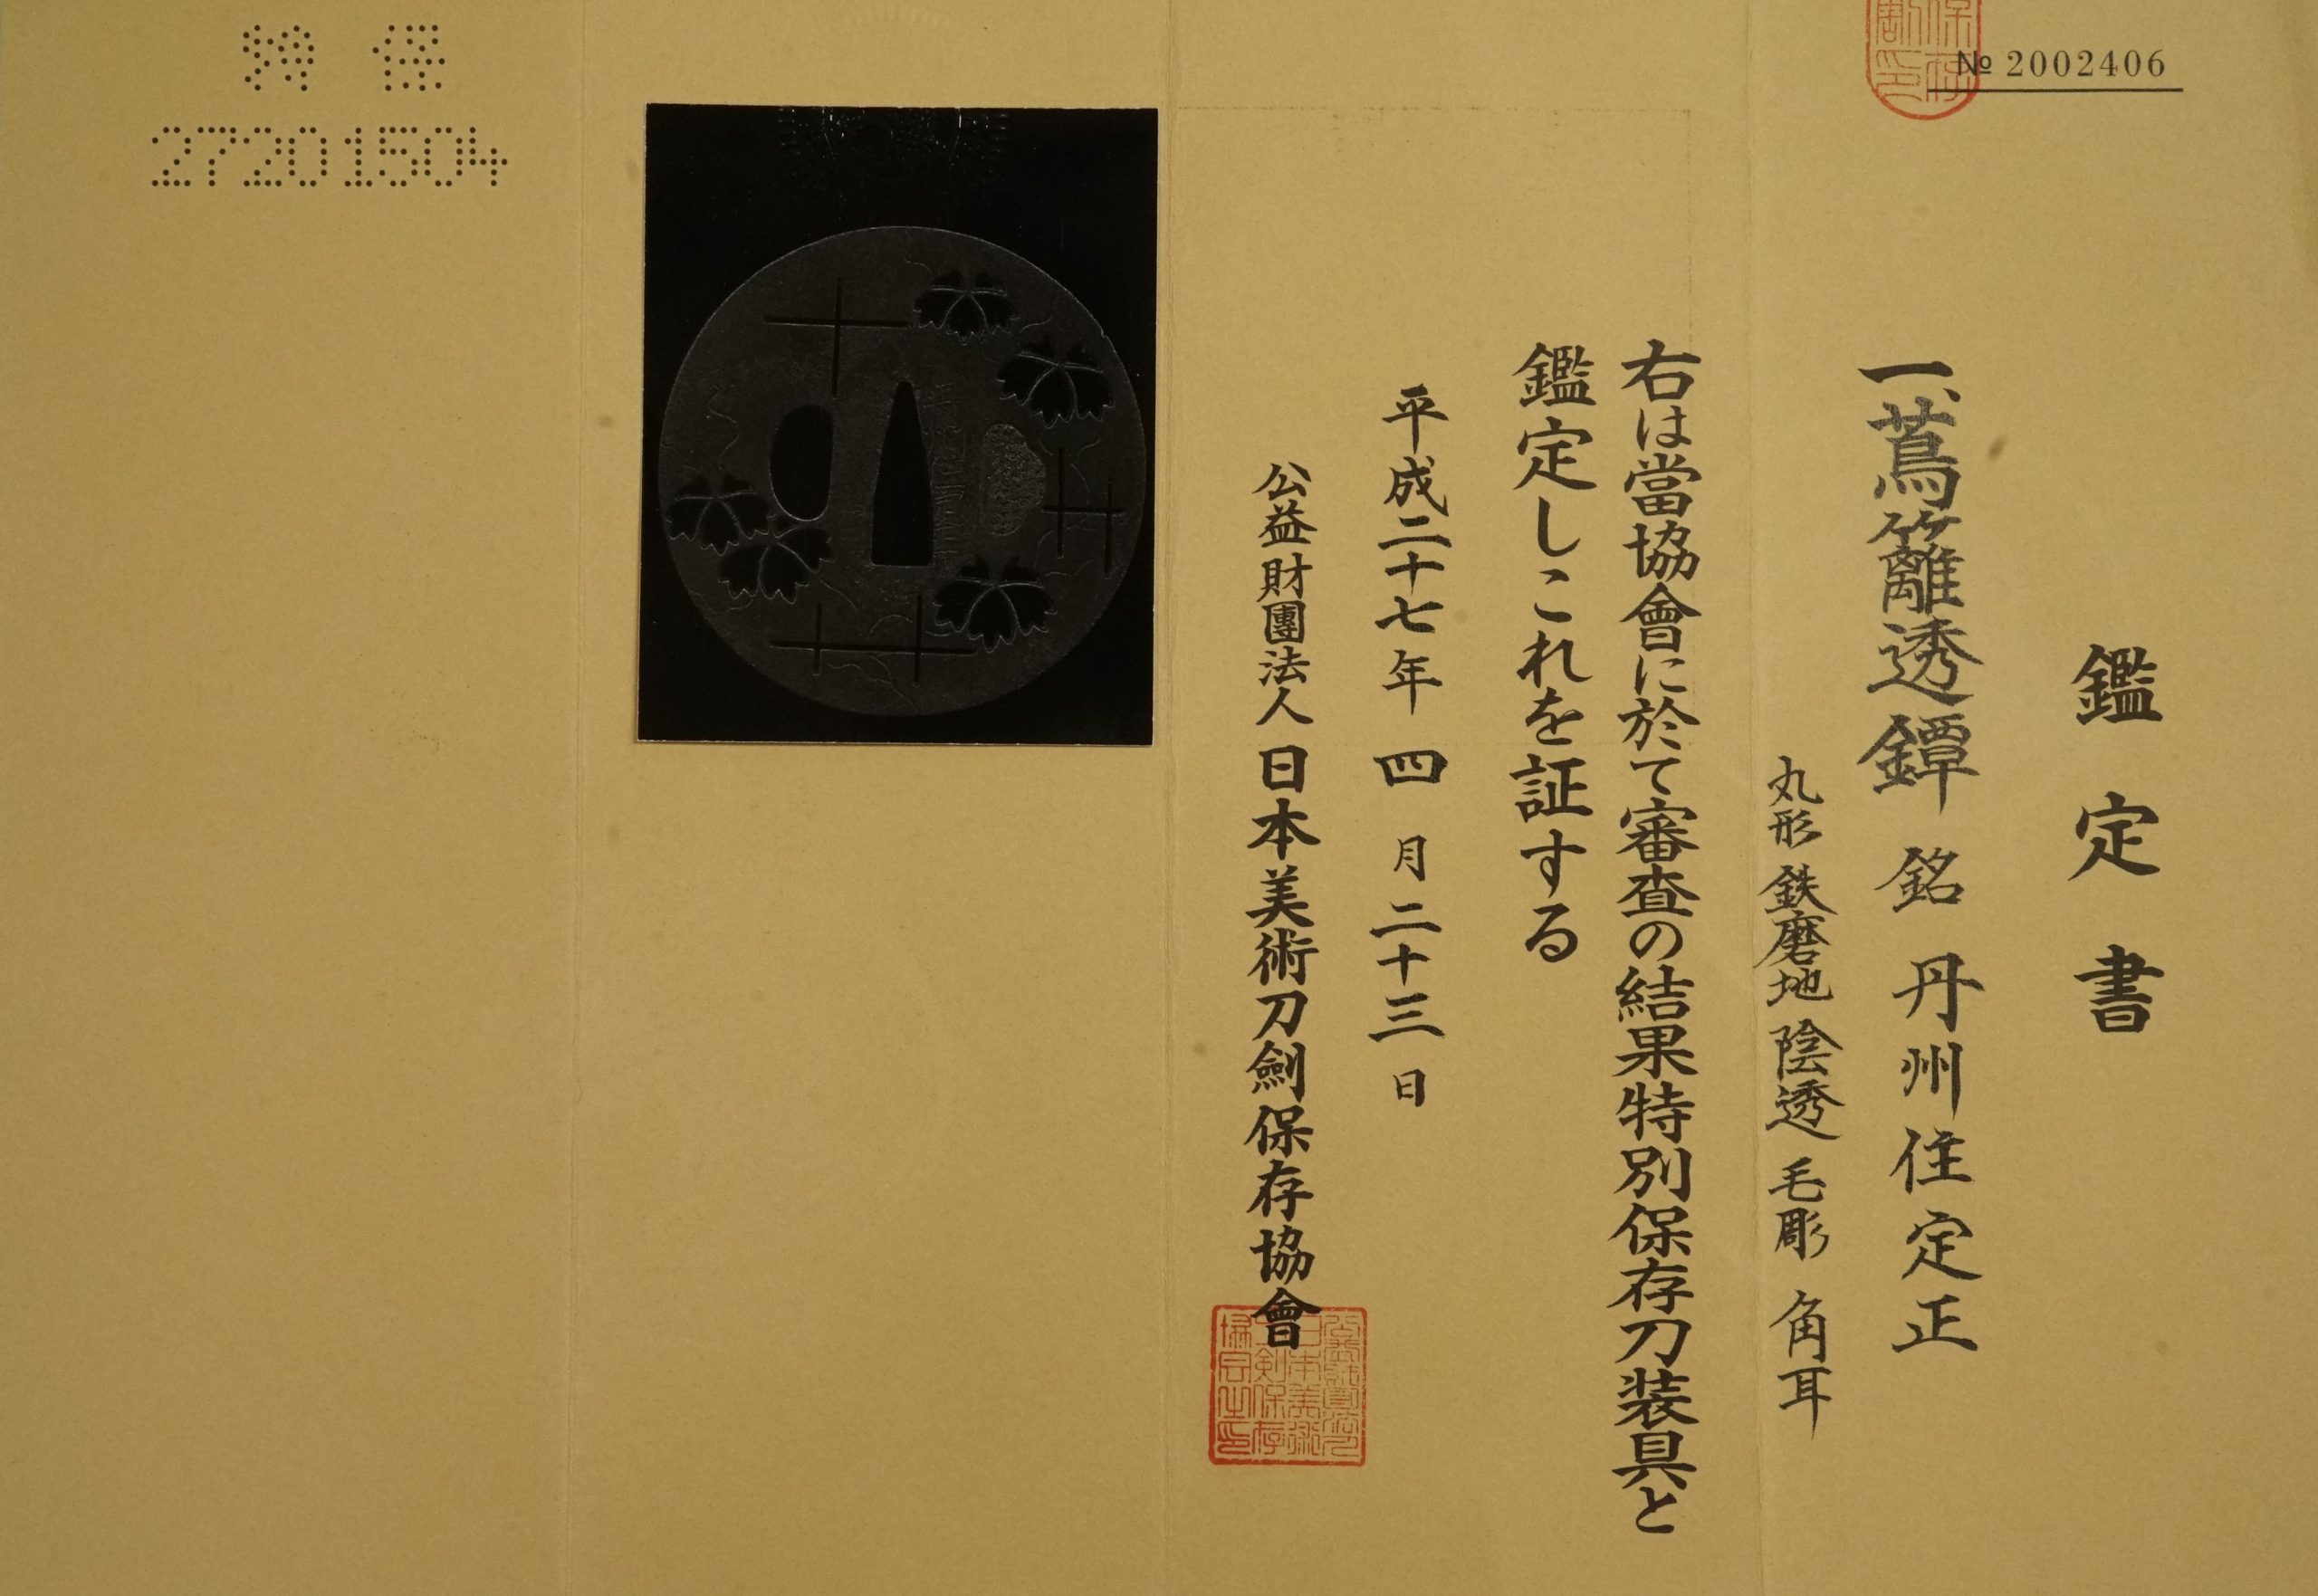 № 2002406
鑑定書
一、蔦籬透鐔 銘 丹州住定正
丸形 鉄磨地 陰透 毛彫 角耳
右は當協會に於て審査の結果特別保存刀装具と
鑑定しこれを証する
平成二十七年 四月二十三日
公益財團法人 日本美術刀劍保存協會
特 保
27201504